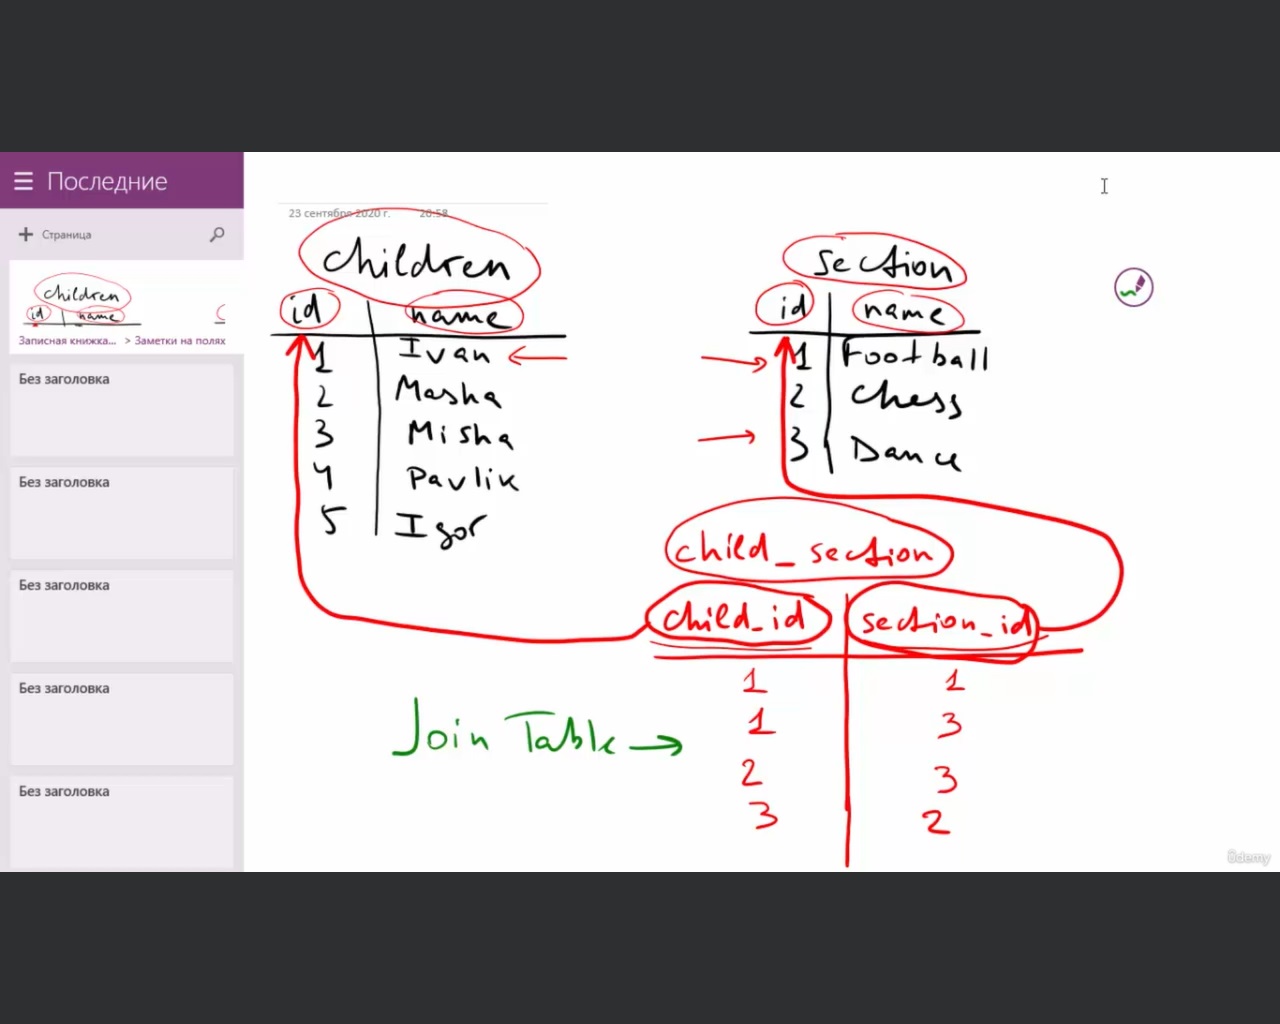 Последние
Страница
children
id name
Записная книжка... > Заметки на полях
Без заголовка
Без заголовка
Без заголовка
Без заголовка
Без заголовка
23 сентября 2020 г. 20:58
children
id name
1 Ivan
2 Masha
3 Misha
4 Pavlik
5 Igor
section
id name
1 Football
2 Chess
3 Dance
child_section
child_id section_id
1 1
1 3
2 3
3 2
Join Table
ûdemy